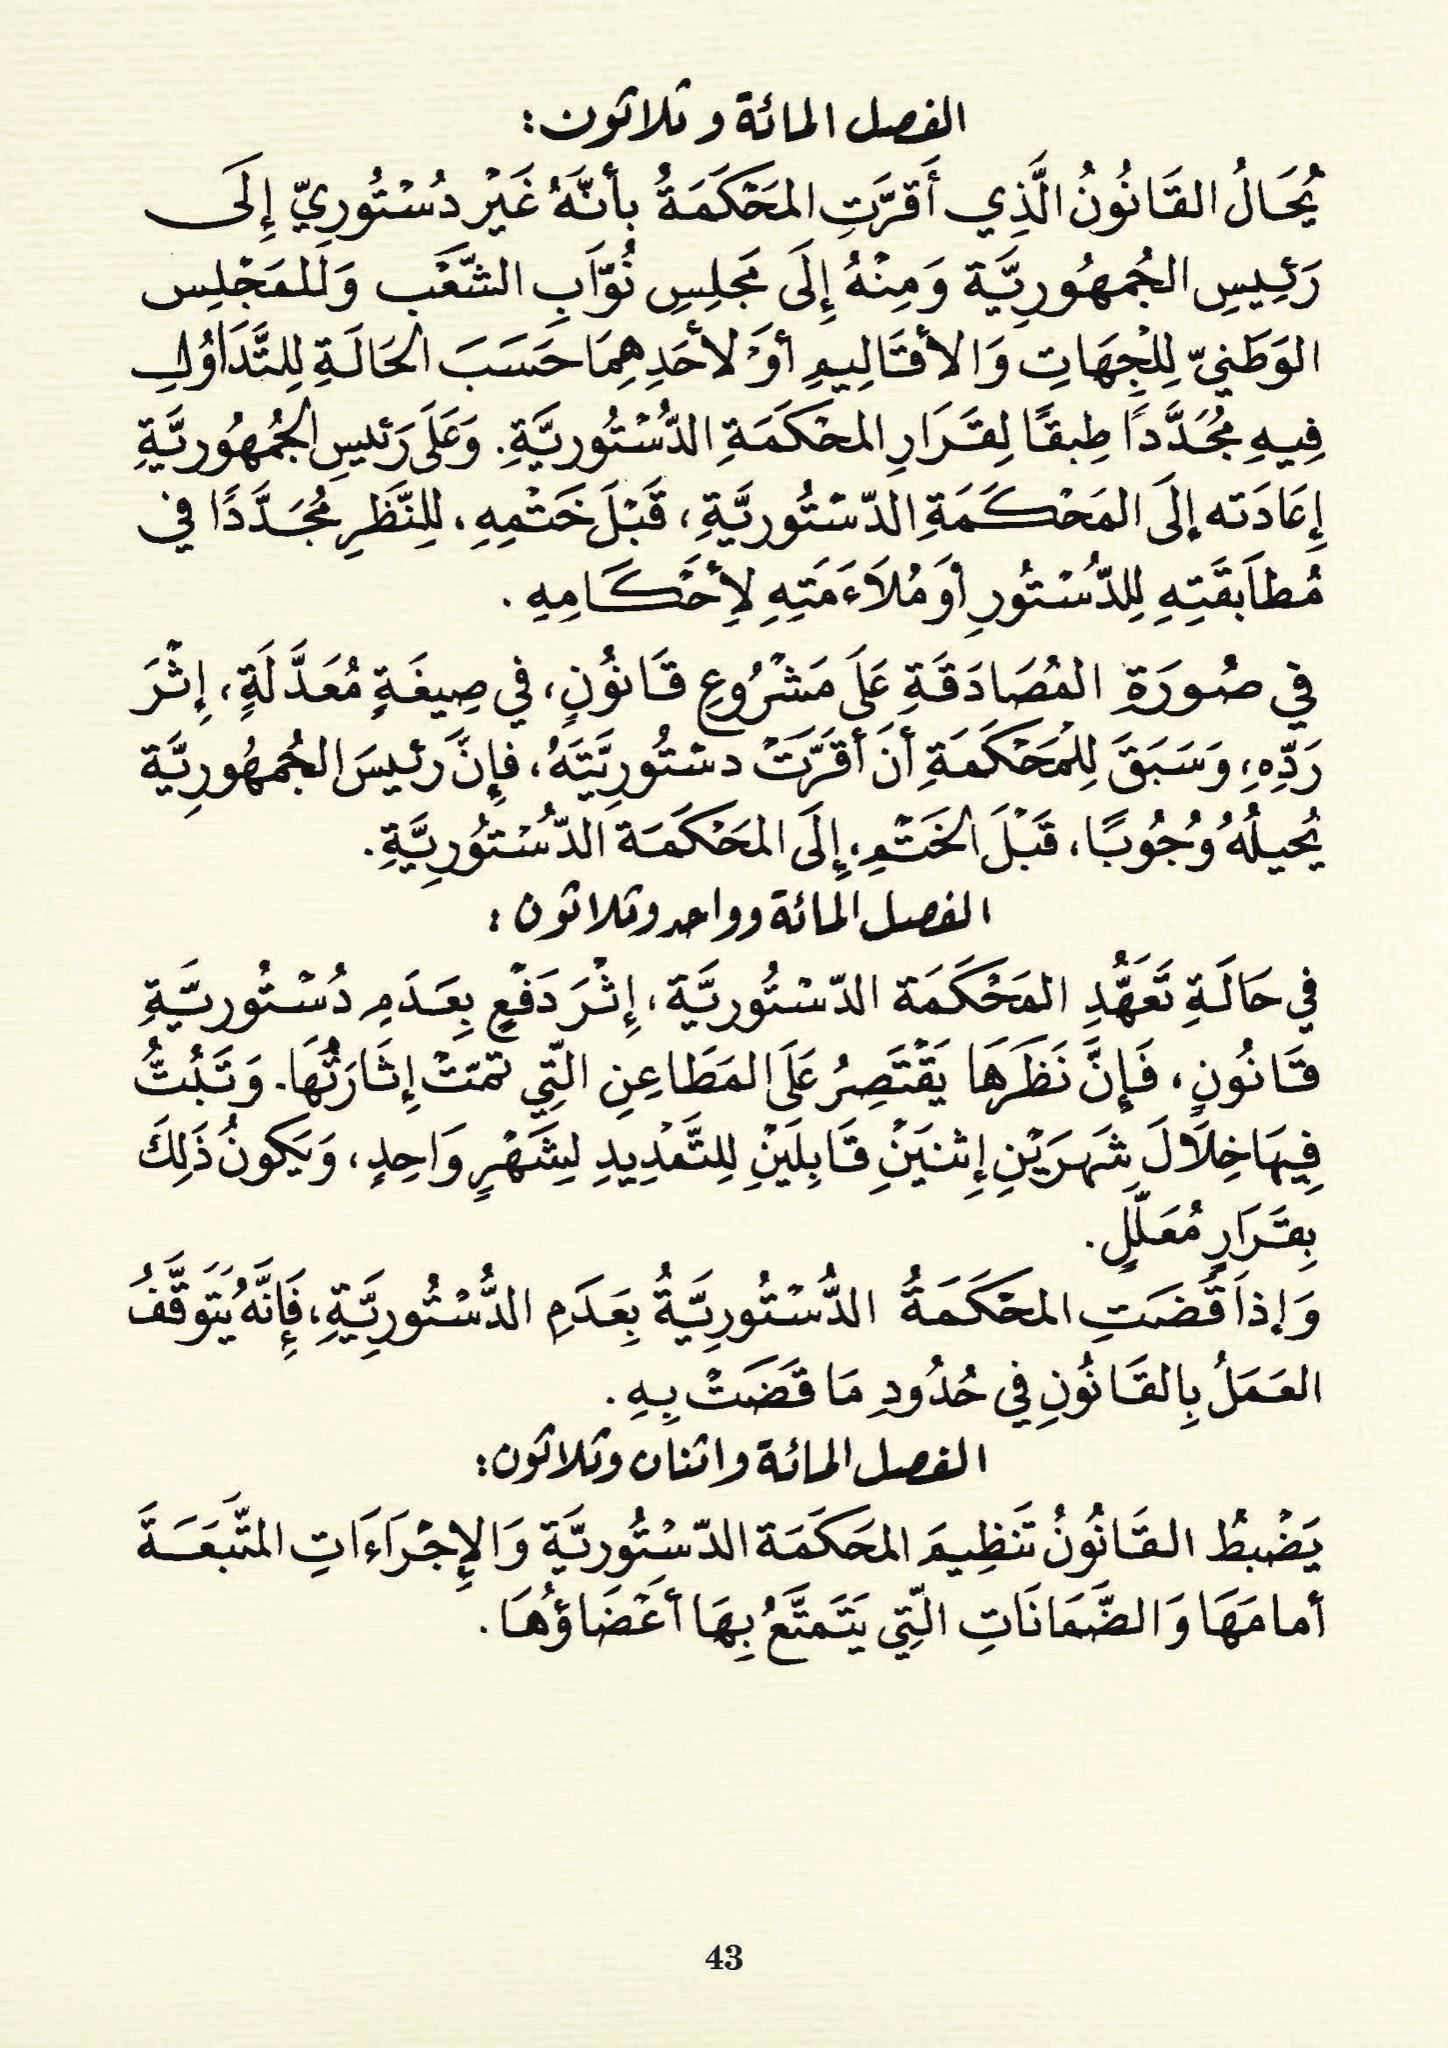 الفصل المائة و ثلاثون:
يُحَالُ القَانُونُ الَّذِي أَقرَّتِ المَحْكَمَةُ بأنَّهُ غَيْر دُسْتُورِيّ إِلَى
رَئِيسِ الجُمهُورِيَّة وَمِنْهُ إِلَى مَجلِسِ نُوّابِ الشَّعْب وَللمَجْلِس
الوَطَنيّ لِلْجِهَاتِ وَالأقَالِيمِ أوْ لأحَدِهِمَا حَسَبَ الحَالَةِ لِلتَّدَاوُلِ
فِيهِ مُجُدَّدًا طِبقًا لِقَرَارِ المحْكَمَةِ الدُّسْتُوريَّةِ. وَعَلَى رَئيسِ الجُمهُوريَّةِ
إِعَادَته إلَى المَحْكَمَةِ الدّسْتُوريَّةِ، قَبْلَ خَتْمِهِ، للِنَّظَرِ مُجَدَّدًا في
مُطاَبقَتِهِ لِلدّسْتُورِ أوَ مُلاَءَمَتِهِ لِأحْكَامِهِ .
في صُورَةِ المُصَادَقَةِ عَلَى مَشْرُوعِ قَانوُنٍ، في صِيغَةٍ مُعَدَّلَةٍ، إِثْرَ
رَدِّهِ، وَسَبَقَ لِلْمَحْكَمَةِ أنَ أقَرَّتْ دسْتُورِيَّتَهُ، فإِنَّ رئيسَ الجُمهُورِيَّة
يُحيلُهُ وُجُوبًا، قَبْلَ الخَتْمِ، إِلَى المَحْكَمَة الدّسْتوُرِيَّةِ.
الفصل المائة وواحد وثلاثون :
في حَالَةِ تَعَهُّدِ المَحْكَمَة الدّسْتُوريَّة، إِثْرَ دَفْعٍ بِعَدَمِ دُسْتُوريَّةِ
قَانُونٍ، فَإِنَّ نَظَرَهَا يَقْتَصِرُ عَلَى المَطَاعِنِ الَّتِي تمَتْ إِثَارَتُهَا. وَتَبُتُّ
فِيهَا خِلَالَ شَهرَيْنِ إِثنَيْنِ قَابِلَيْنِ لِلتَّمْدِيدِ لِشَهْرٍ وَاحِدٍ، وَيَكونُ ذَلِكَ
بِقَرَارٍ مُعَلَّلٍ.
وَإذاَ قَضَتِ المحْكَمَةُ الدُّسْتُورِيَّةُ بِعَدَمِ الدُّسْتُورِيَّةِ، فَإِنَّهُ يَتَوَقَّفُ
العَمَلُ بِالقَانُونِ في حُدُودِ مَا قَضَتْ بِهِ .
الفصل المائة واثنان وثلاثون:
يَضْبطُ القَانُونُ تَنظِيمَ المَحكَمَة الدّسْتُوريَّةِ وَالإِجْرَاءَاتِ المتَّبَعَةَ
أمامَهَا وَالضَّمَانَاتِ الّتِي يَتَمتَّعُ بِهَا أعْضَاؤُهَا .
43